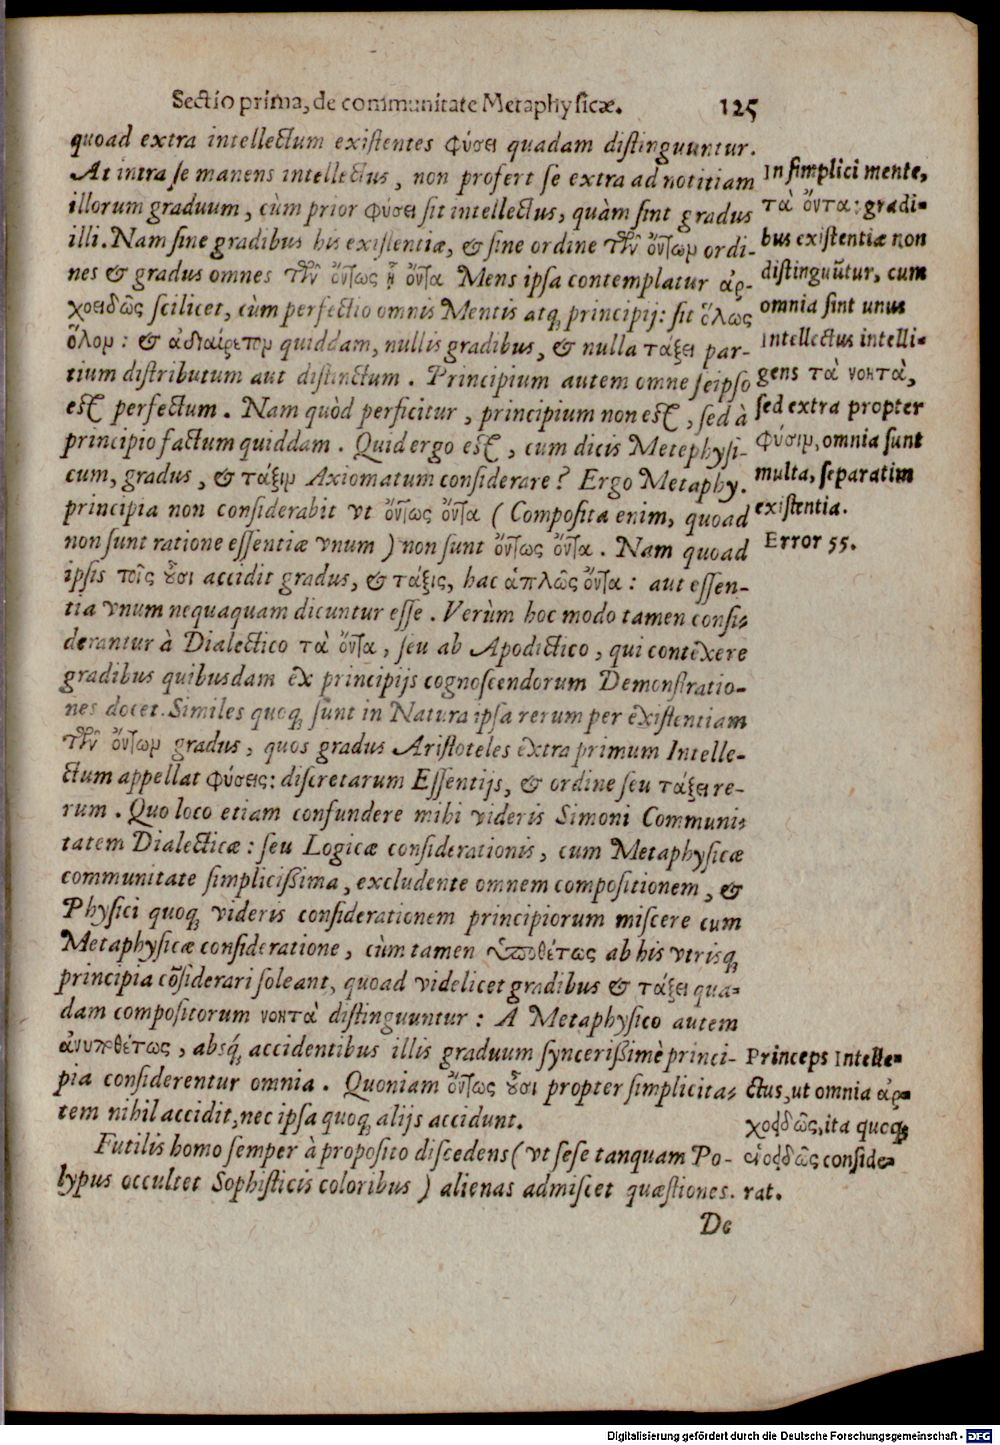 Sectio prima, de communitate Metaphysicæ. 125
quoad extra intellectum existentes φύσει quadam distinguuntur.
At intra se manens intellectus, non profert se extra ad notitiam
illorum graduum, cùm prior φύσει sit intellectus, quàm sint gradus
illi. Nam sine gradibus his existentiæ, & sine ordine τῶν ὄντων ordi-
nes & gradus omnes τῶν ὄντως ᾗ ὄντα Mens ipsa contemplatur ἀρ-
χοειδῶς scilicet, cùm perfectio omnis Mentis atq; principij: sit ὅλως
ὅλον: & ἀδιαίρετον quiddam, nullis gradibus, & nulla τάξει par-
tium distributum aut distinctum. Principium autem omne seipso
est perfectum. Nam quòd perficitur, principium non est, sed à
principio factum quiddam. Quid ergo est, cum dicis Metephysi-
cum, gradus, & τάξιν Axiomatum considerare? Ergo Metaphy.
principia non considerabit vt ὄντως ὄντα (Composita enim, quoad
non sunt ratione essentiæ vnum) non sunt ὄντως ὄντα. Nam quoad
ipsis τοῖς οὖσι accidit gradus, & τάξις, hac ἁπλῶς ὄντα: aut essen-
tia vnum nequaquam dicuntur esse. Verùm hoc modo tamen consi-
derantur à Dialectico τὰ ὄντα, seu ab Apodictico, qui contexere
gradibus quibusdam ex principijs cognoscendorum Demonstratio-
nes docet. Similes quoq; sunt in Natura ipsa rerum per existentiam
τῶν ὄντων gradus, quos gradus Aristoteles extra primum Intelle-
ctum appellat φύσεις: discretarum Essentijs, & ordine seu τάξει re-
rum. Quo loco etiam confundere mihi videris Simoni Communi-
tatem Dialecticæ: seu Logicæ considerationis, cum Metaphysicæ
communitate simplicissima, excludente omnem compositionem, &
Physici quoq; videris considerationem principiorum miscere cum
Metaphysicæ consideratione, cùm tamen ὑποθέτως ab his vtrisq;
principia cõsiderari soleant, quoad videlicet gradibus & τάξει qua-
dam compositorum νοητὰ distinguuntur: A Metaphysico autem
ἀνυποθέτως, absq́; accidentibus illis graduum syncerissimè princi-
pia considerentur omnia. Quoniam ὄντως οὖσι propter simplicita-
tem nihil accidit, nec ipsa quoq; alijs accidunt.
Futilis homo semper à proposito discedens (vt sese tanquam Po-
lypus occultet Sophisticis coloribus) alienas admiscet quæstiones.
De
In simplici mente,
τὰ ὄντα: gradi-
bus existentiæ non
distinguũtur, cum
omnia sint unus
intellectus intelli-
gens τὰ νοητὰ,
sed extra propter
φύσιν, omnia sunt
multa, separatim
existentia.
Error 55.
Princeps Intelle-
ctus, ut omnia ἀρ-
χοειδῶς, ita quoq;
εἰοειδῶς conside-
rat.
Digitalisierung gefördert durch die Deutsche Forschungsgemeinschaft - DFG